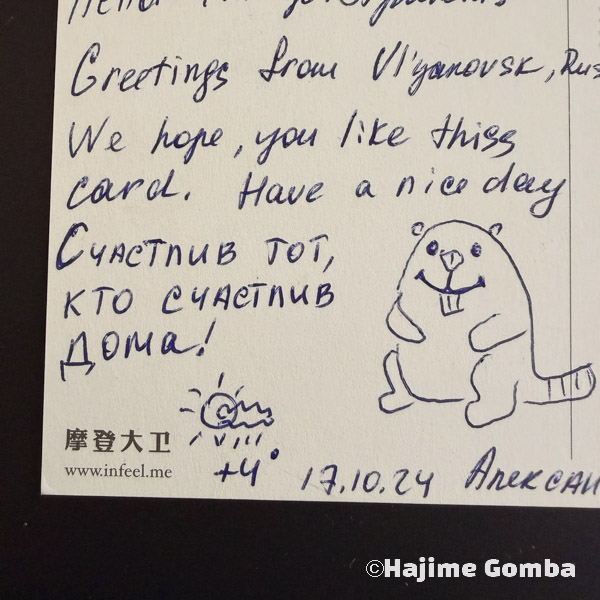 Greetings from Ul'yanovsk,
We hope, you like thiss
card. Have a nice day
Счастлив тот,
кто счастлив
дома!
摩登大卫
www.infeel.me
+4°
17.10.24
©Hajime Gomba